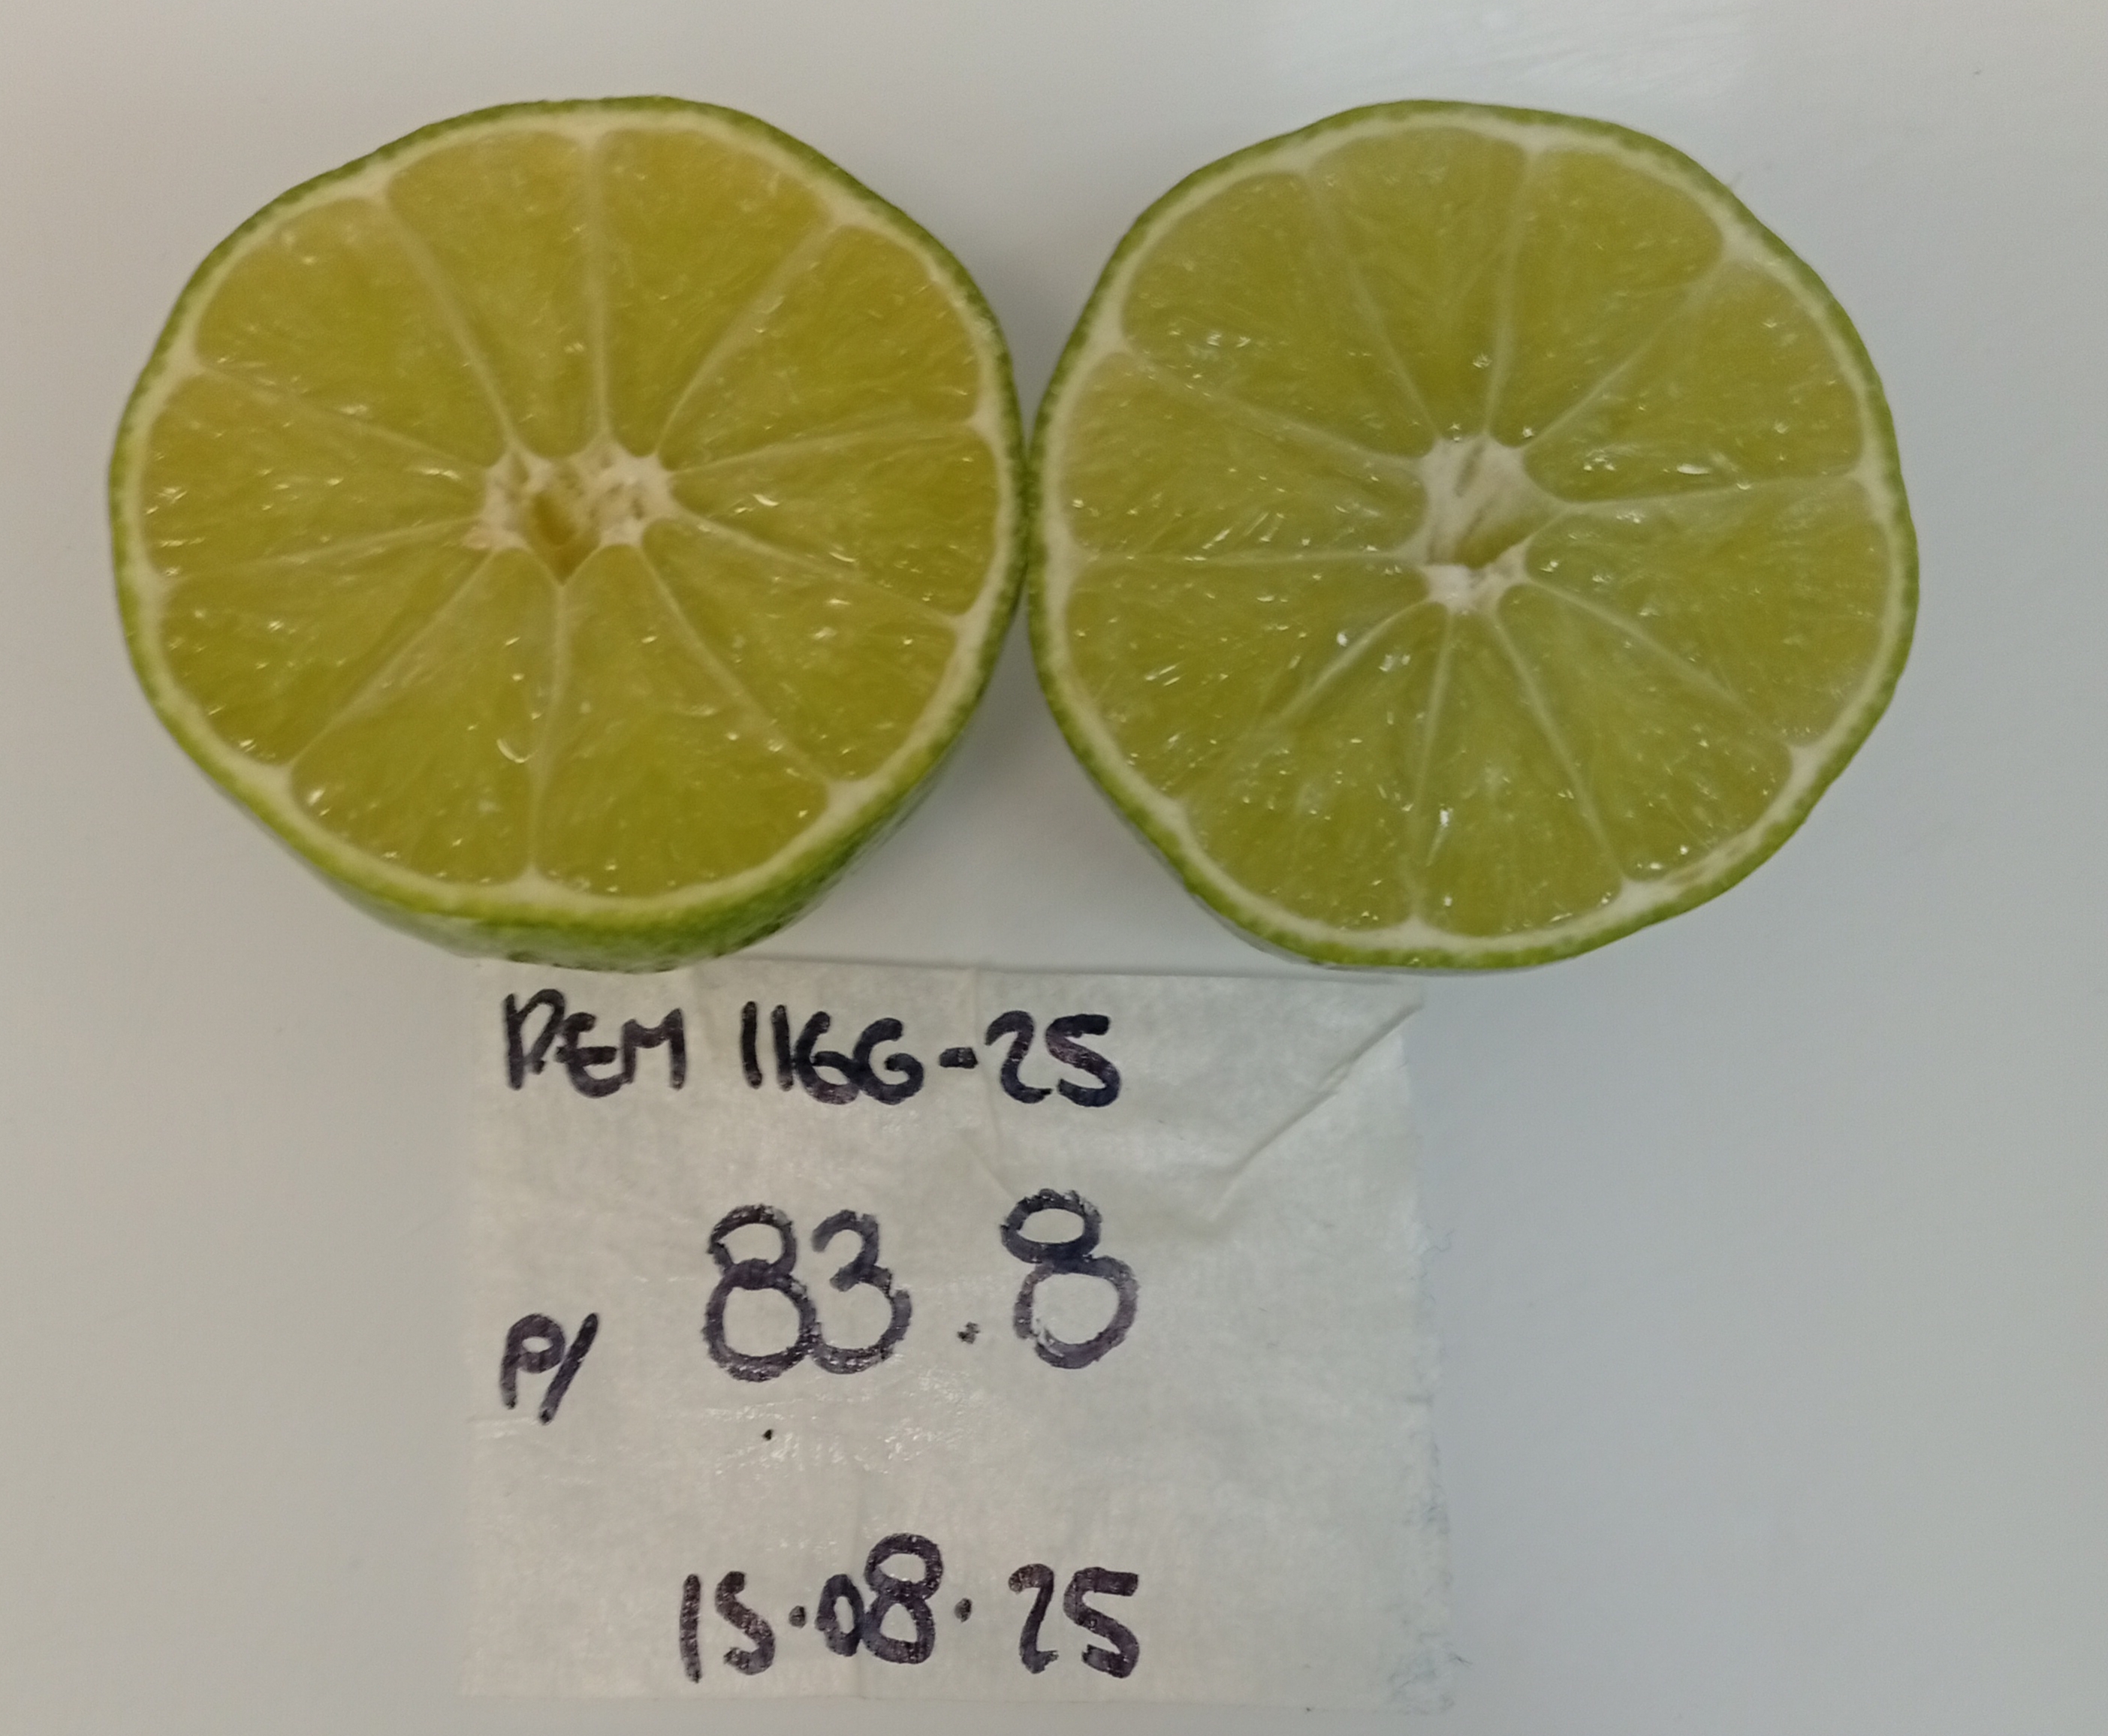 REM 1166-25
P/ 83.8
15.08.25